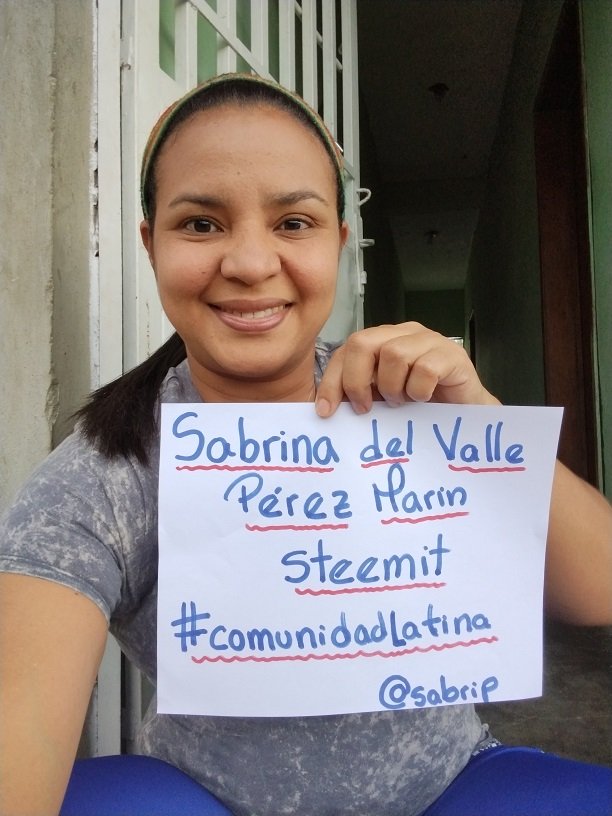 Sabrina del Valle
Pérez Marin
Steemit
#comunidadLatina
@sabrip